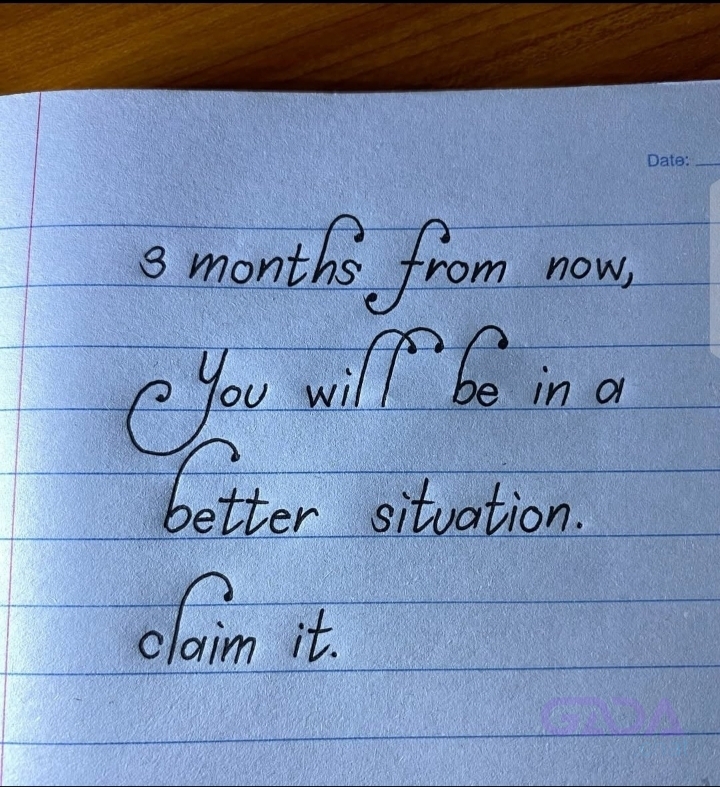 Date:
3 months from now,
You will be in a
better situation.
claim it.